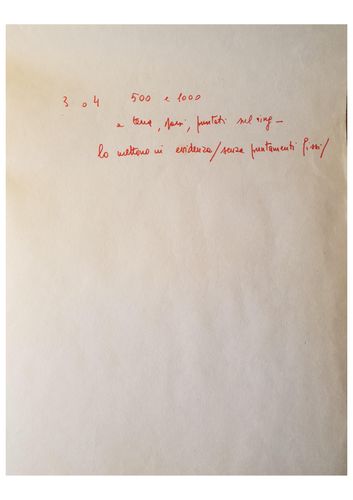 3 o 4 500 e 1000
a terra, sparsi, puntati sul ring -
lo mettono in evidenza / senza puntamenti fissi /